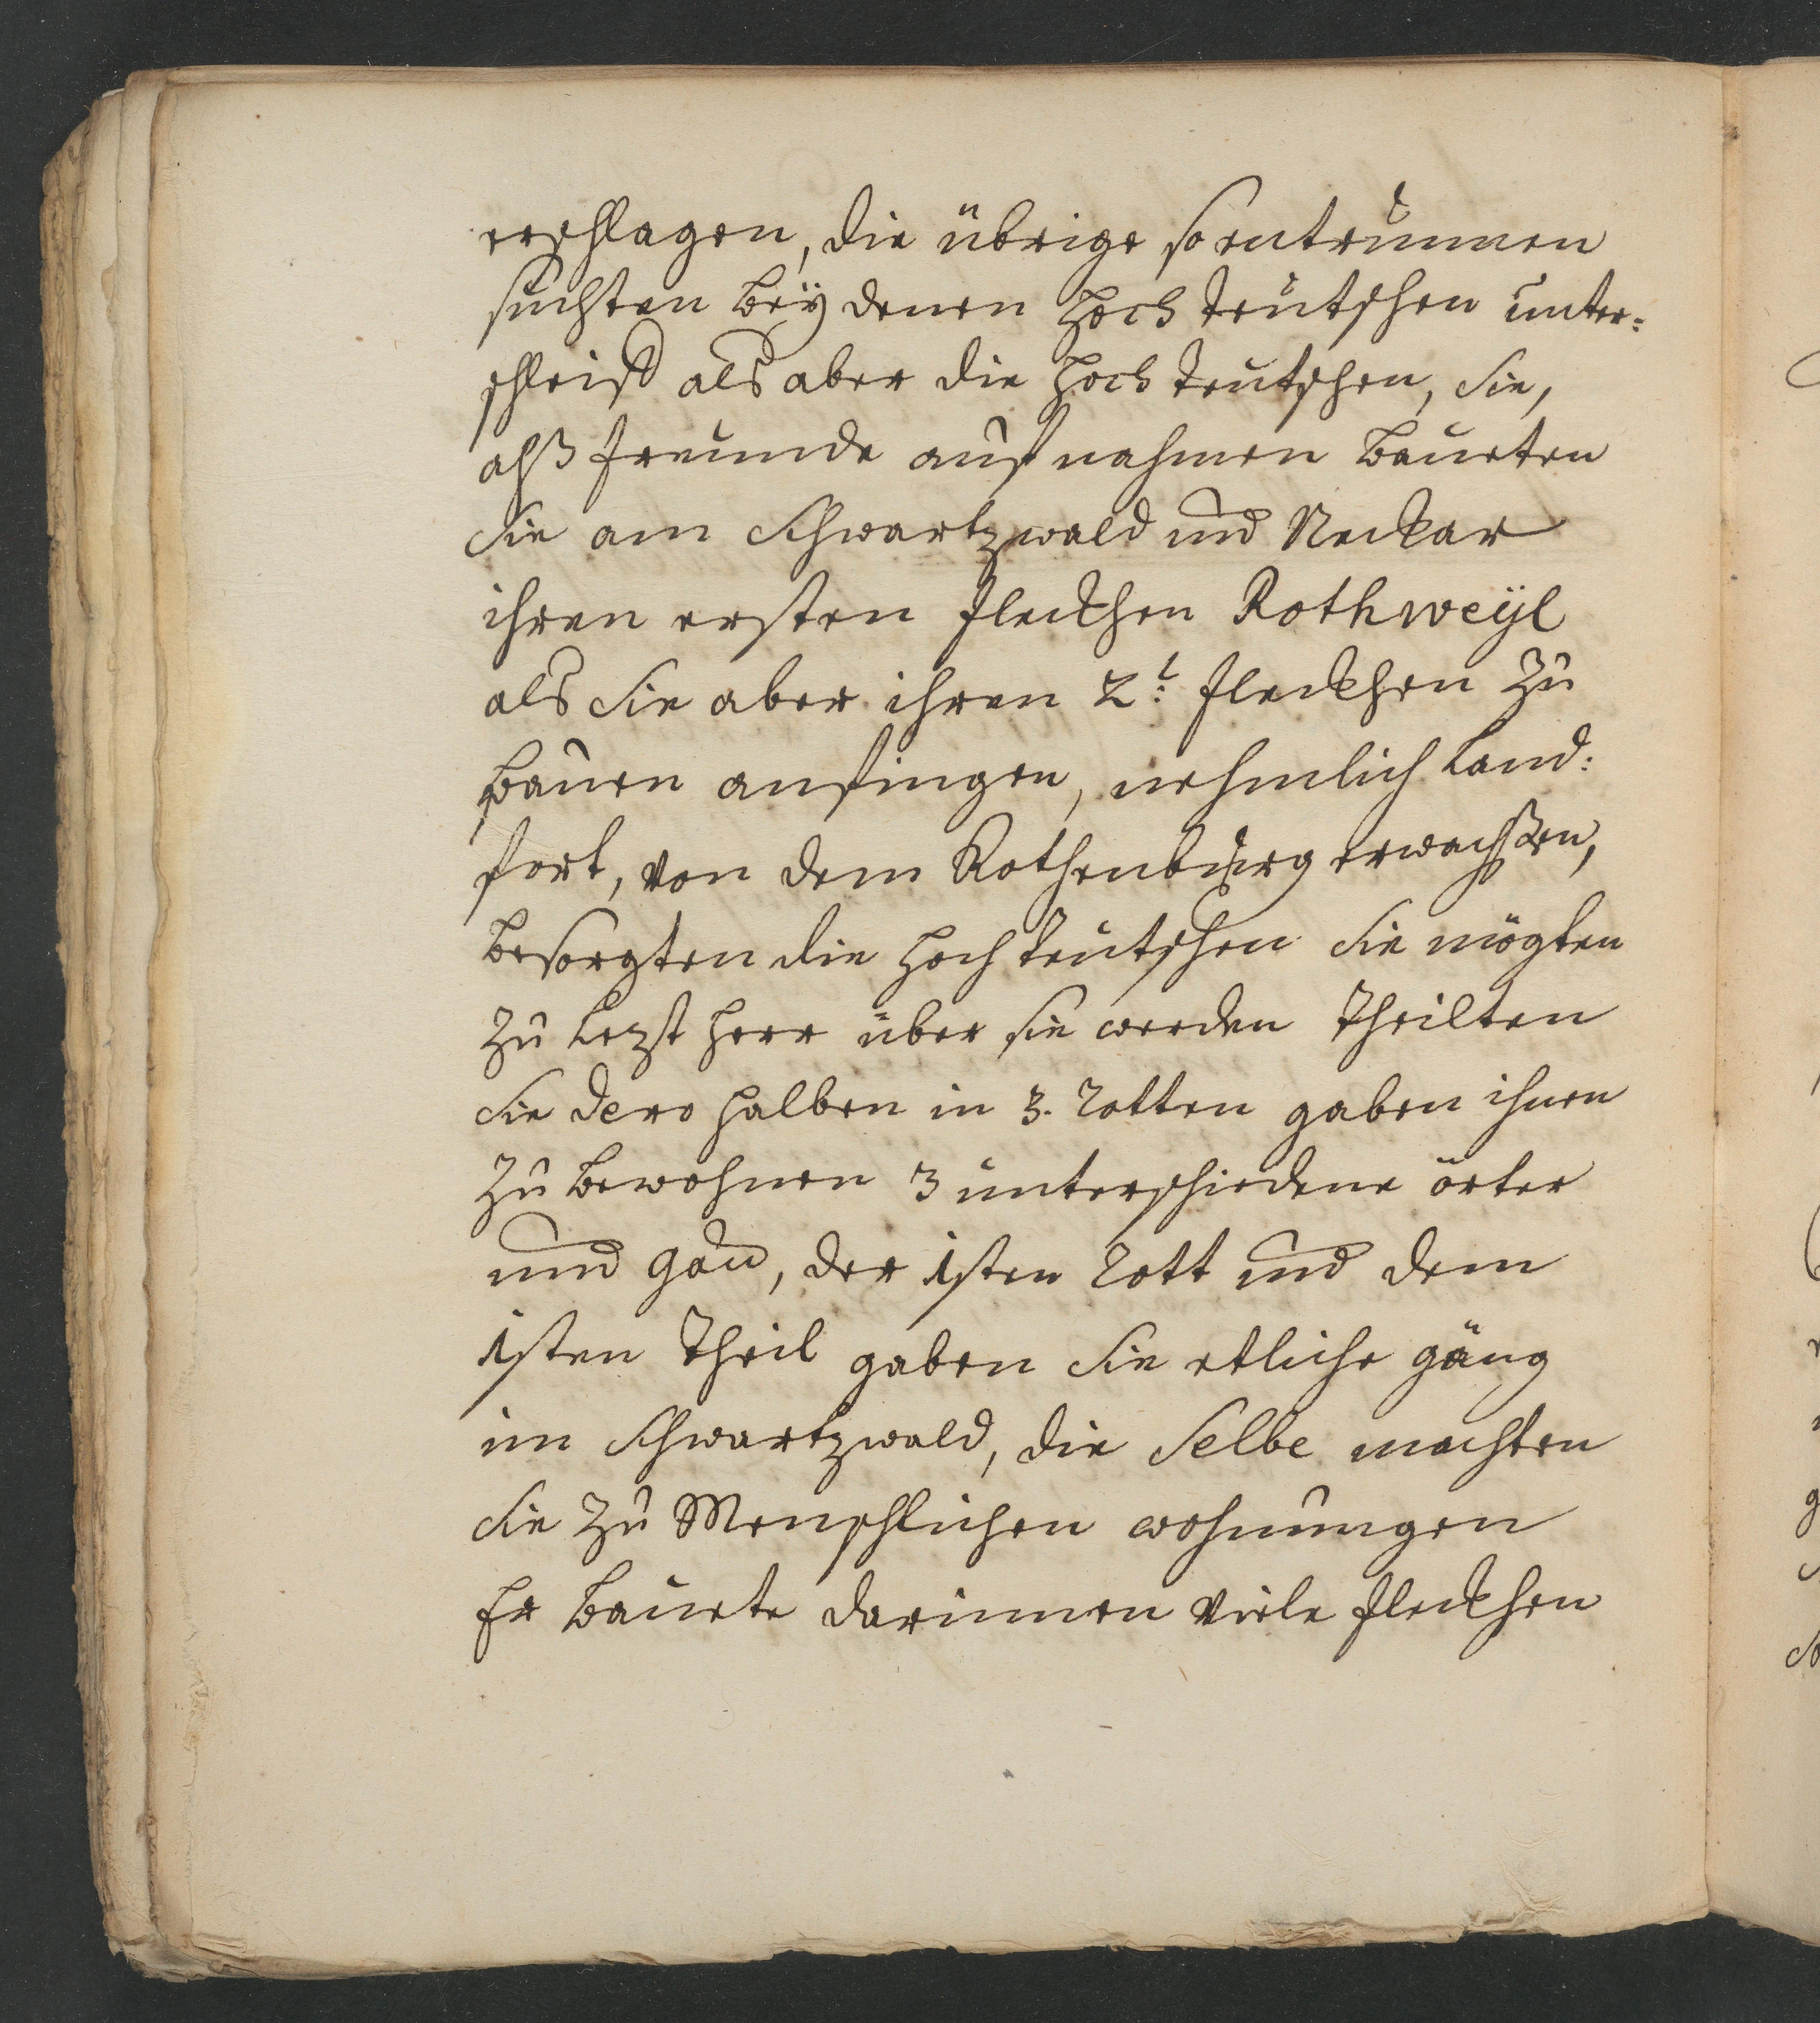 erschlagen, die übrige so entrunnen
suchten beÿ denen Hoch teutschen unter=
schleiff als aber die Hoch teutschen, Sie,
alß freunde auf nahmen baueten
Sie am Schwartzwald und Neckar
ihren ersten fleckhen Rothweÿl
als Sie aber ihren 2t: fleckhen zu
bauen anfingen, nehmlich Land:
fort, von dem Rothenburg erwachßen,
besorgten die Hoch teutschen Sie mögten
zu Lezt Herr über sie werden theilten
Sie dero halben in 3. Rotten gaben ihnen
zu bewohnen 3 unterschiedene örter
und Gäu, der 1sten Rott und dem
1sten Theil gaben Sie etliche gäng
im Schwartzwald, die Selbe machten
Sie zu Menschlichen wohnungen
Er bauete darinnen viele fleckhen